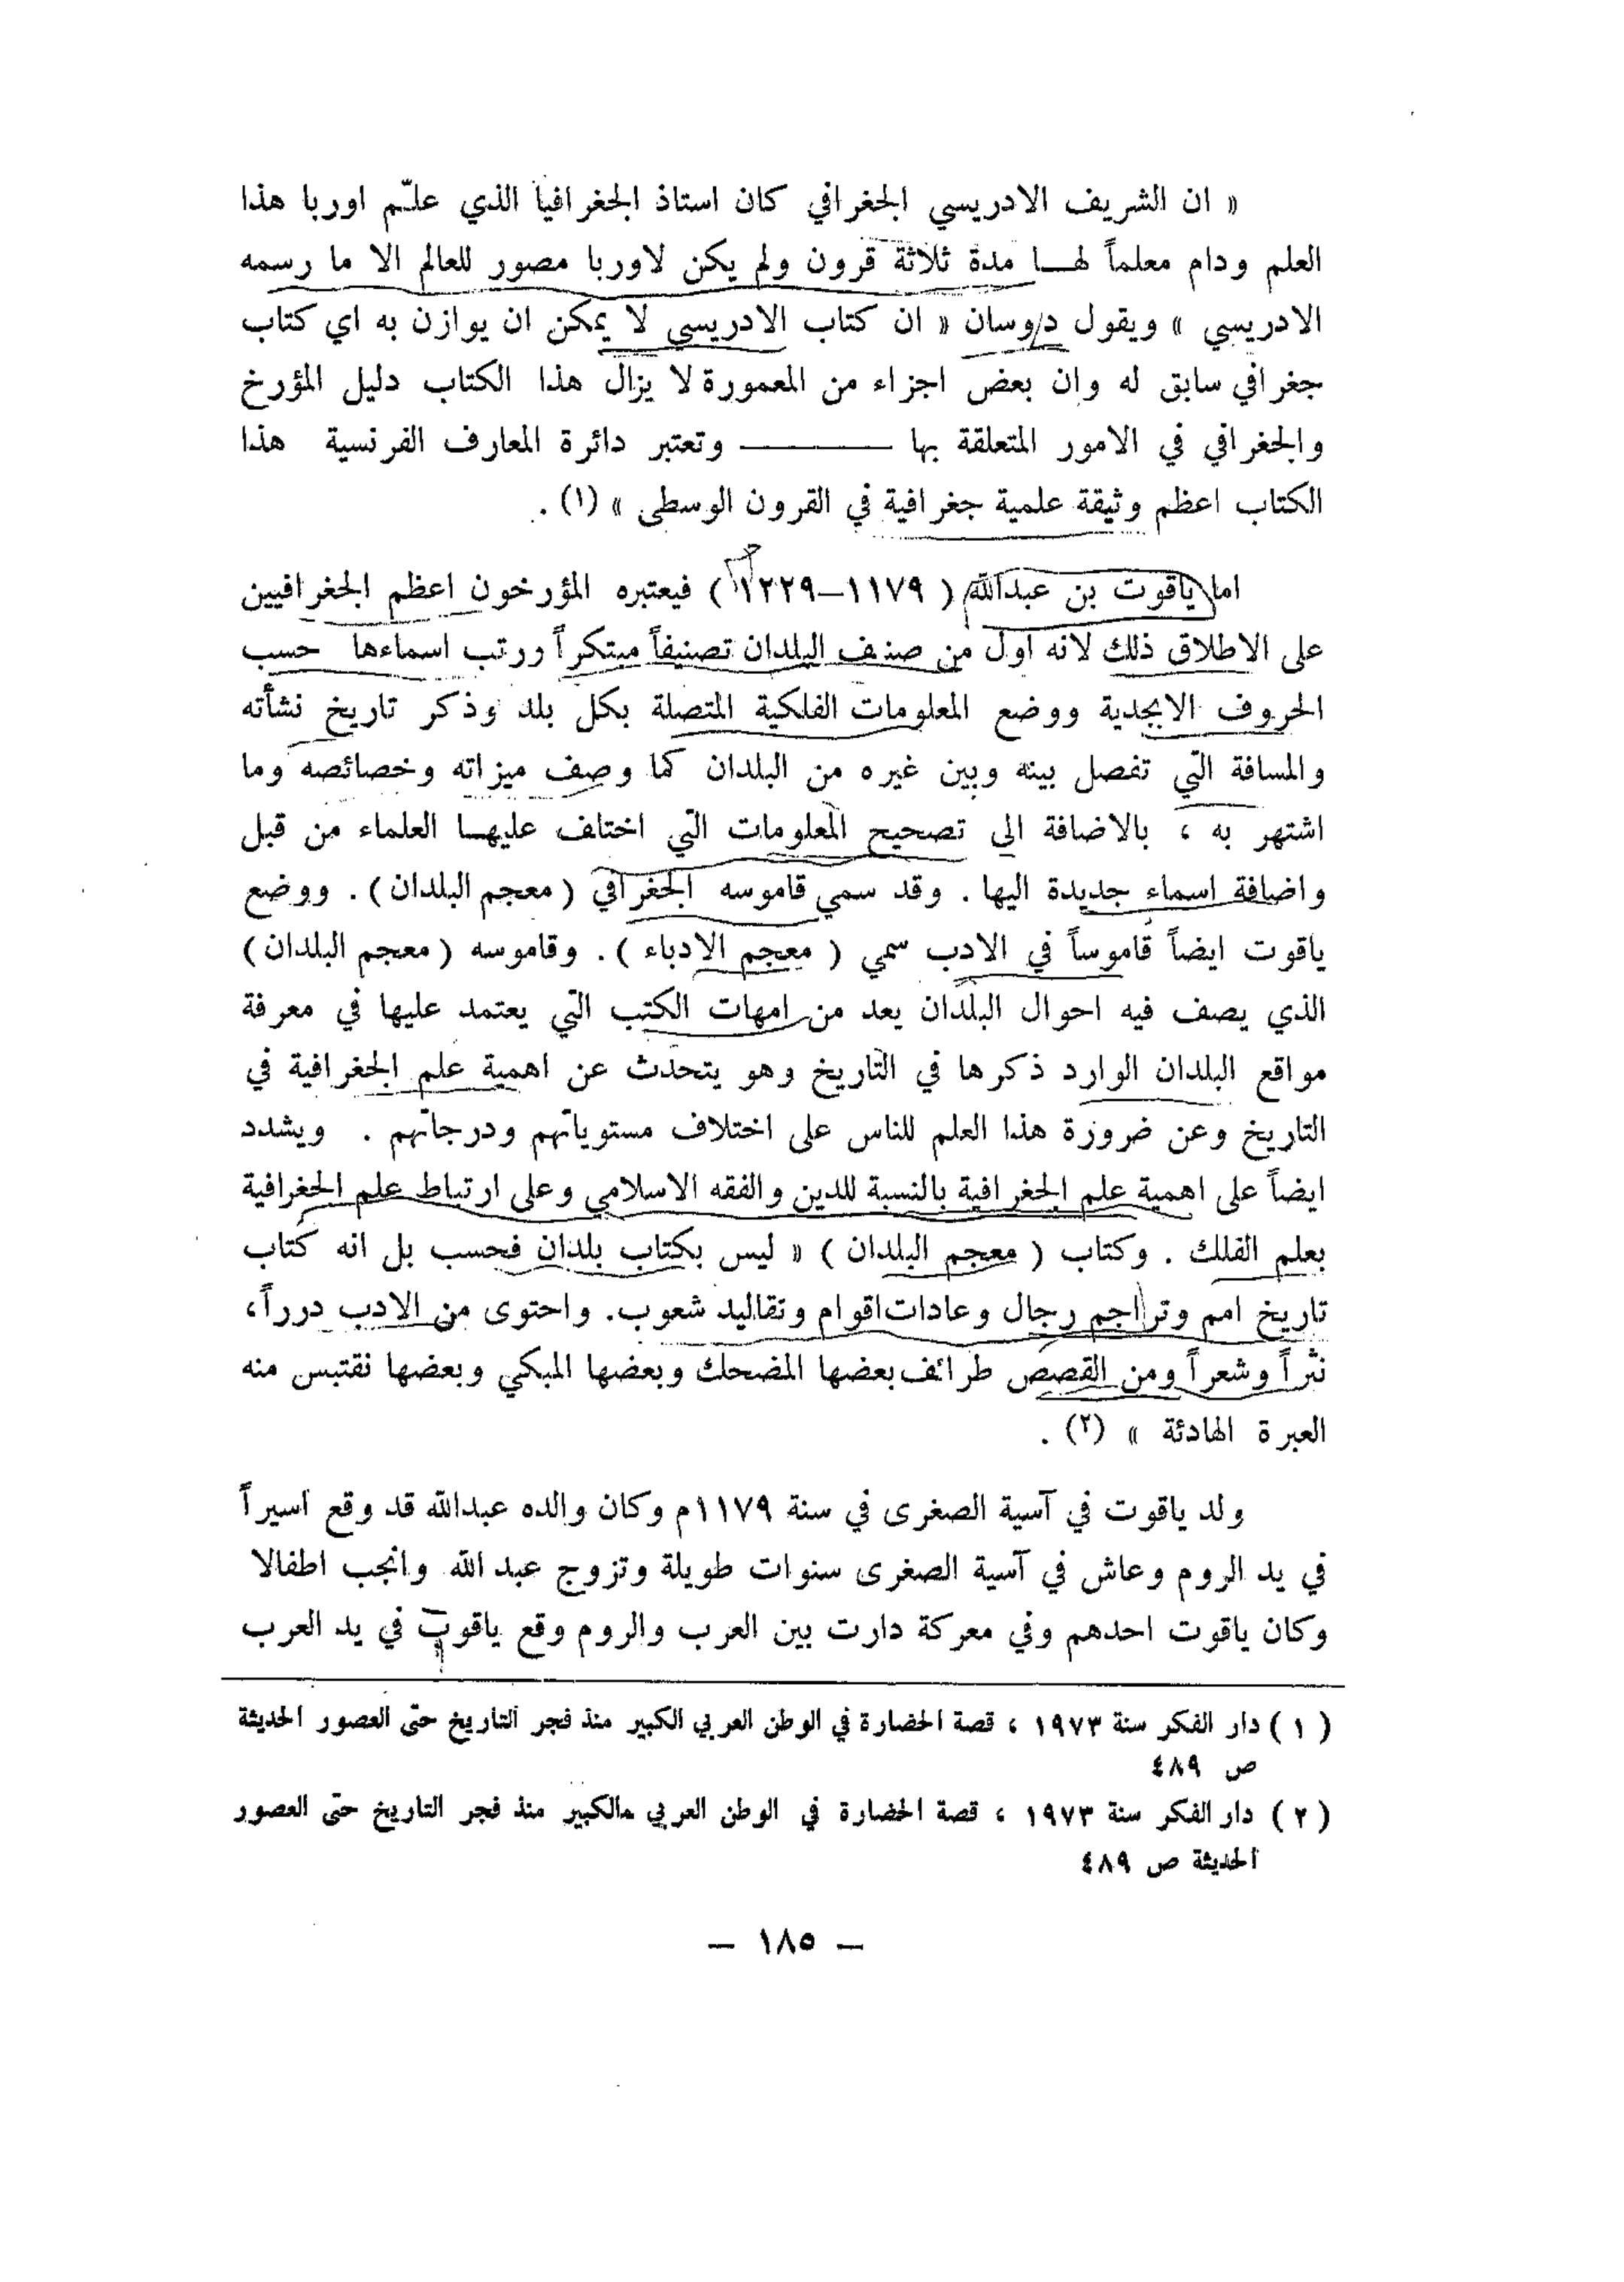 « ان الشريف الادريسي الجغرافي كان استاذ الجغرافيا الذي علّم اوربا هذا
العلم ودام معلماً لهــا مدة ثلاثة قرون ولم يكن لاوربا مصور للعالم الا ما رسمه
الادريسي » ويقول دوسان « ان كتاب الادريسي لا يمكن ان يوازن به اي كتاب
جغرافي سابق له وان بعض اجزاء من المعمورة لا يزال هذا الكتاب دليل المؤرخ
والجغرافي في الامور المتعلقة بها ——— وتعتبر دائرة المعارف الفرنسية هذا
الكتاب اعظم وثيقة علمية جغرافية في القرون الوسطى » (١) .
اما ياقوت بن عبدالله ( ١١٧٩–١٢٢٩ ) فيعتبره المؤرخون اعظم الجغرافيين
على الاطلاق ذلك لانه اول من صنف البلدان تصنيفاً مبتكراً ورتب اسماءها حسب
الحروف الابجدية ووضع المعلومات الفلكية المتصلة بكل بلد وذكر تاريخ نشأته
والمسافة التي تفصل بينه وبين غيره من البلدان كما وصف ميزاته وخصائصه وما
اشتهر به ، بالاضافة الى تصحيح المعلومات التي اختلف عليهــا العلماء من قبل
واضافة اسماء جديدة اليها . وقد سمي قاموسه الجغرافي ( معجم البلدان ) . ووضع
ياقوت ايضاً قاموساً في الادب سمي ( معجم الادباء ) . وقاموسه ( معجم البلدان )
الذي يصف فيه احوال البلدان يعد من امهات الكتب التي يعتمد عليها في معرفة
مواقع البلدان الوارد ذكرها في التاريخ وهو يتحدث عن اهمية علم الجغرافية في
التاريخ وعن ضرورة هذا العلم للناس على اختلاف مستوياتهم ودرجاتهم . ويشدد
ايضاً على اهمية علم الجغرافية بالنسبة للدين والفقه الاسلامي وعلى ارتباط علم الجغرافية
بعلم الفلك . وكتاب ( معجم البلدان ) « ليس بكتاب بلدان فحسب بل انه كتاب
تاريخ امم وتراجم رجال وعادات اقوام وتقاليد شعوب. واحتوى من الادب درراً،
نثراً وشعراً ومن القصص طرائف بعضها المضحك وبعضها المبكي وبعضها نقتبس منه
العبرة الهادئة » (٢) .
ولد ياقوت في آسية الصغرى في سنة ١١٧٩م وكان والده عبدالله قد وقع اسيراً
في يد الروم وعاش في آسية الصغرى سنوات طويلة وتزوج عبد الله وانجب اطفالا
وكان ياقوت احدهم وفي معركة دارت بين العرب والروم وقع ياقوت في يد العرب
( ١ ) دار الفكر سنة ١٩٧٣ ، قصة الحضارة في الوطن العربي الكبير منذ فجر التاريخ حتى العصور الحديثة
ص ٤٨٩
( ٢ ) دار الفكر سنة ١٩٧٣ ، قصة الحضارة في الوطن العربي مالكبير منذ فجر التاريخ حتى العصور
الحديثة ص ٤٨٩
– ١٨٥ –